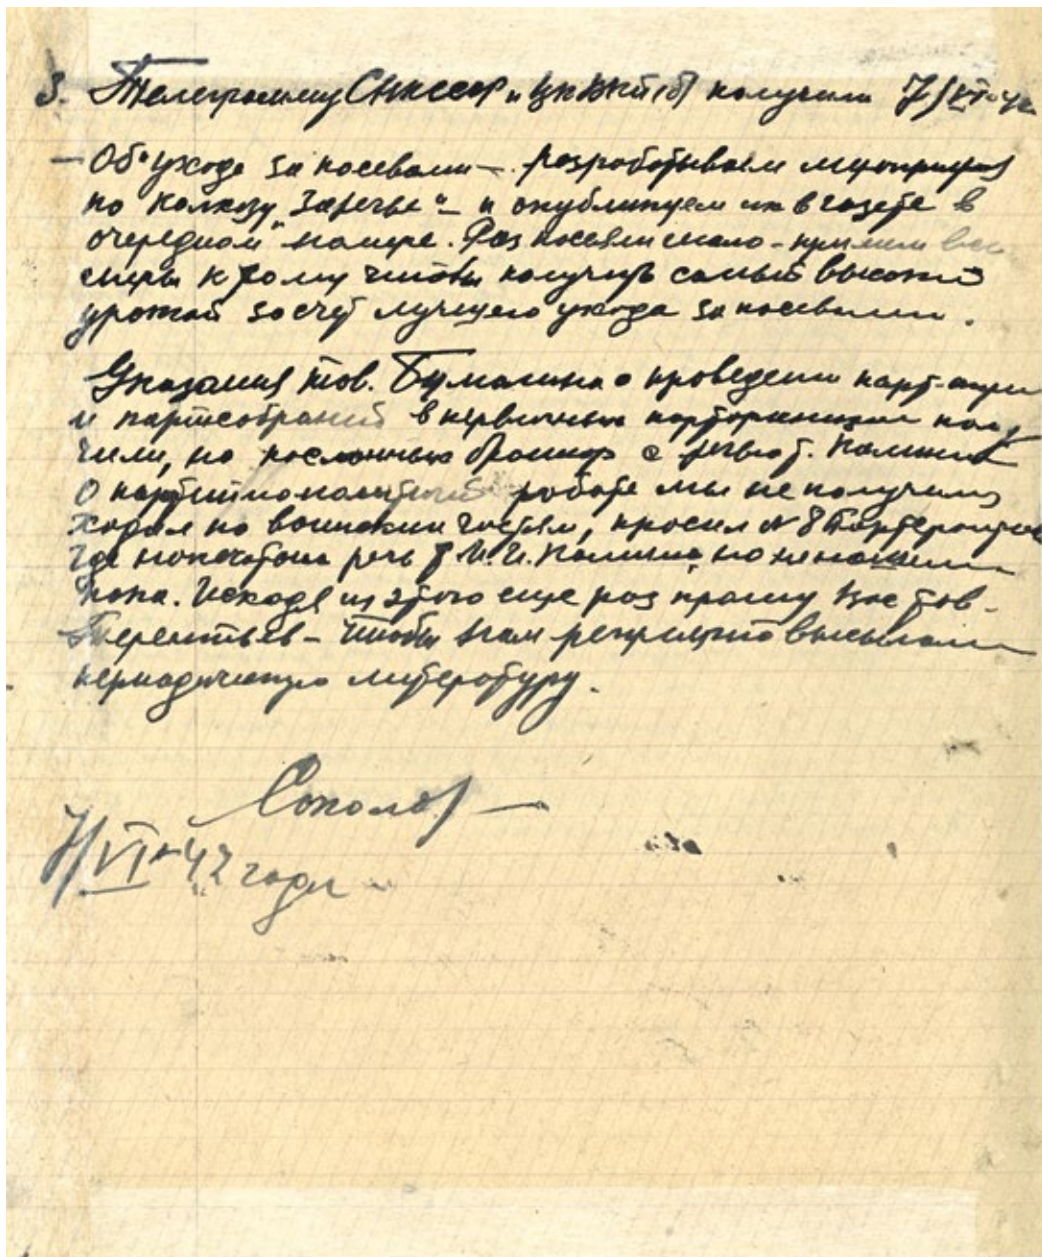 3. Телеграмму СНКСССР и ЦК ВКП(б) получили 7/VI-42
— Об "уходе за посевами" — разработываем мероприятия
по колхозу "Заречье" — и опубликуем их в газете в
очередном номере. Раз посеяли мало — примем все
меры к тому чтобы получить самый высокий
урожай за счет лучшего ухода за посевами.
Указания тов. о проведении парт-
и партсобраний в первичных парторганизациях полу
чили, но посланных брошюр с речью т. Калинина
О партийнополитической работе мы не получили
ходил по воинским частям, просил № 8
где напечатана речь т. М.И. Калинина, но не нашли
пока. Исходя из этого еще раз прошу Вас тов.
Терентьев — чтобы нам регулярно высылали
периодическую литературу.
Соколов
7/VI-42 года